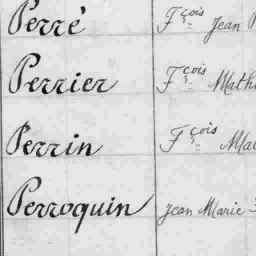 Perré Fçois Jean
Perrier Fçois Math
Perrin Fçois Ma
Perroquin Jean Marie